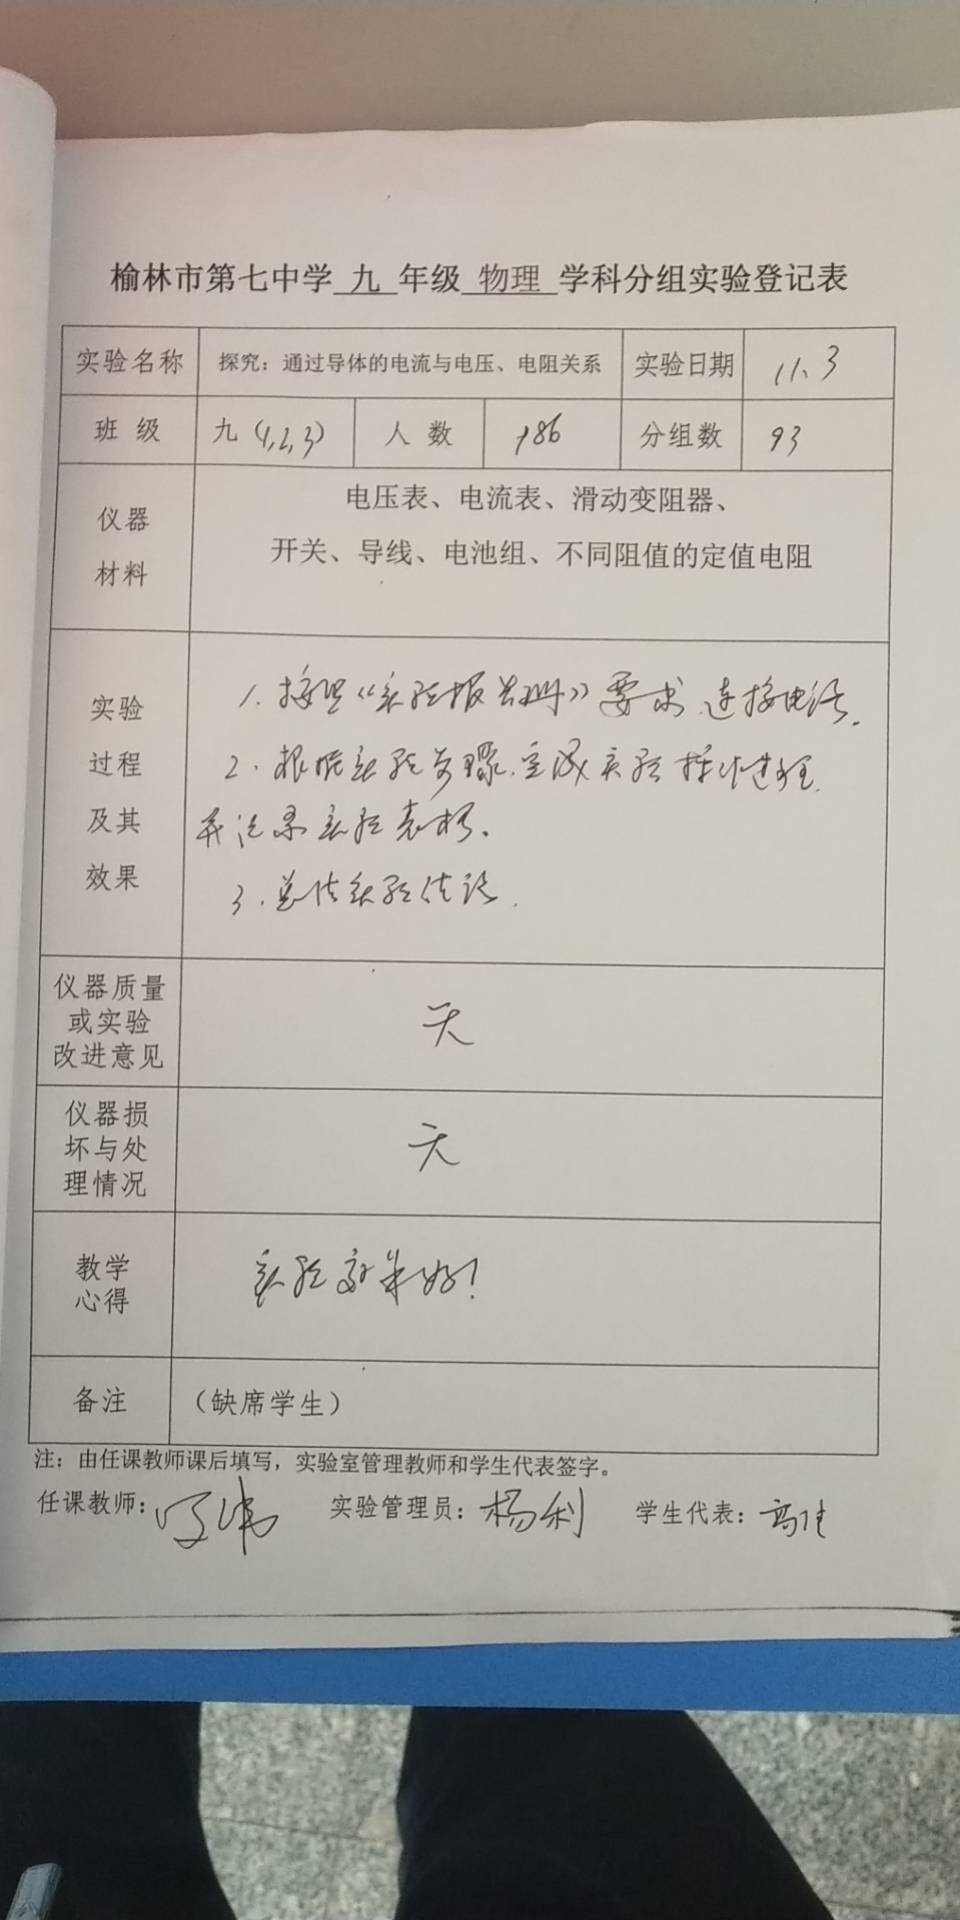 榆林市第七中学 九 年级 物理 学科分组实验登记表
实验名称 探究：通过导体的电流与电压、电阻关系 实验日期 11.3
班 级 九（1,2,3） 人 数 186 分组数 93
仪器
材料
电压表、电流表、滑动变阻器、
开关、导线、电池组、不同阻值的定值电阻
实验
过程
及其
效果
1. 按照《实验报告册》要求，连接电路。
2. 根据实验步骤，完成实验操作过程
并记录实验表格。
3. 总结实验结论.
仪器质量
或实验
改进意见
无
仪器损
坏与处
理情况
无
教学
心得
实验效果好！
备注 （缺席学生）
注：由任课教师课后填写，实验室管理教师和学生代表签字。
任课教师： 实验管理员：杨利 学生代表：高佳